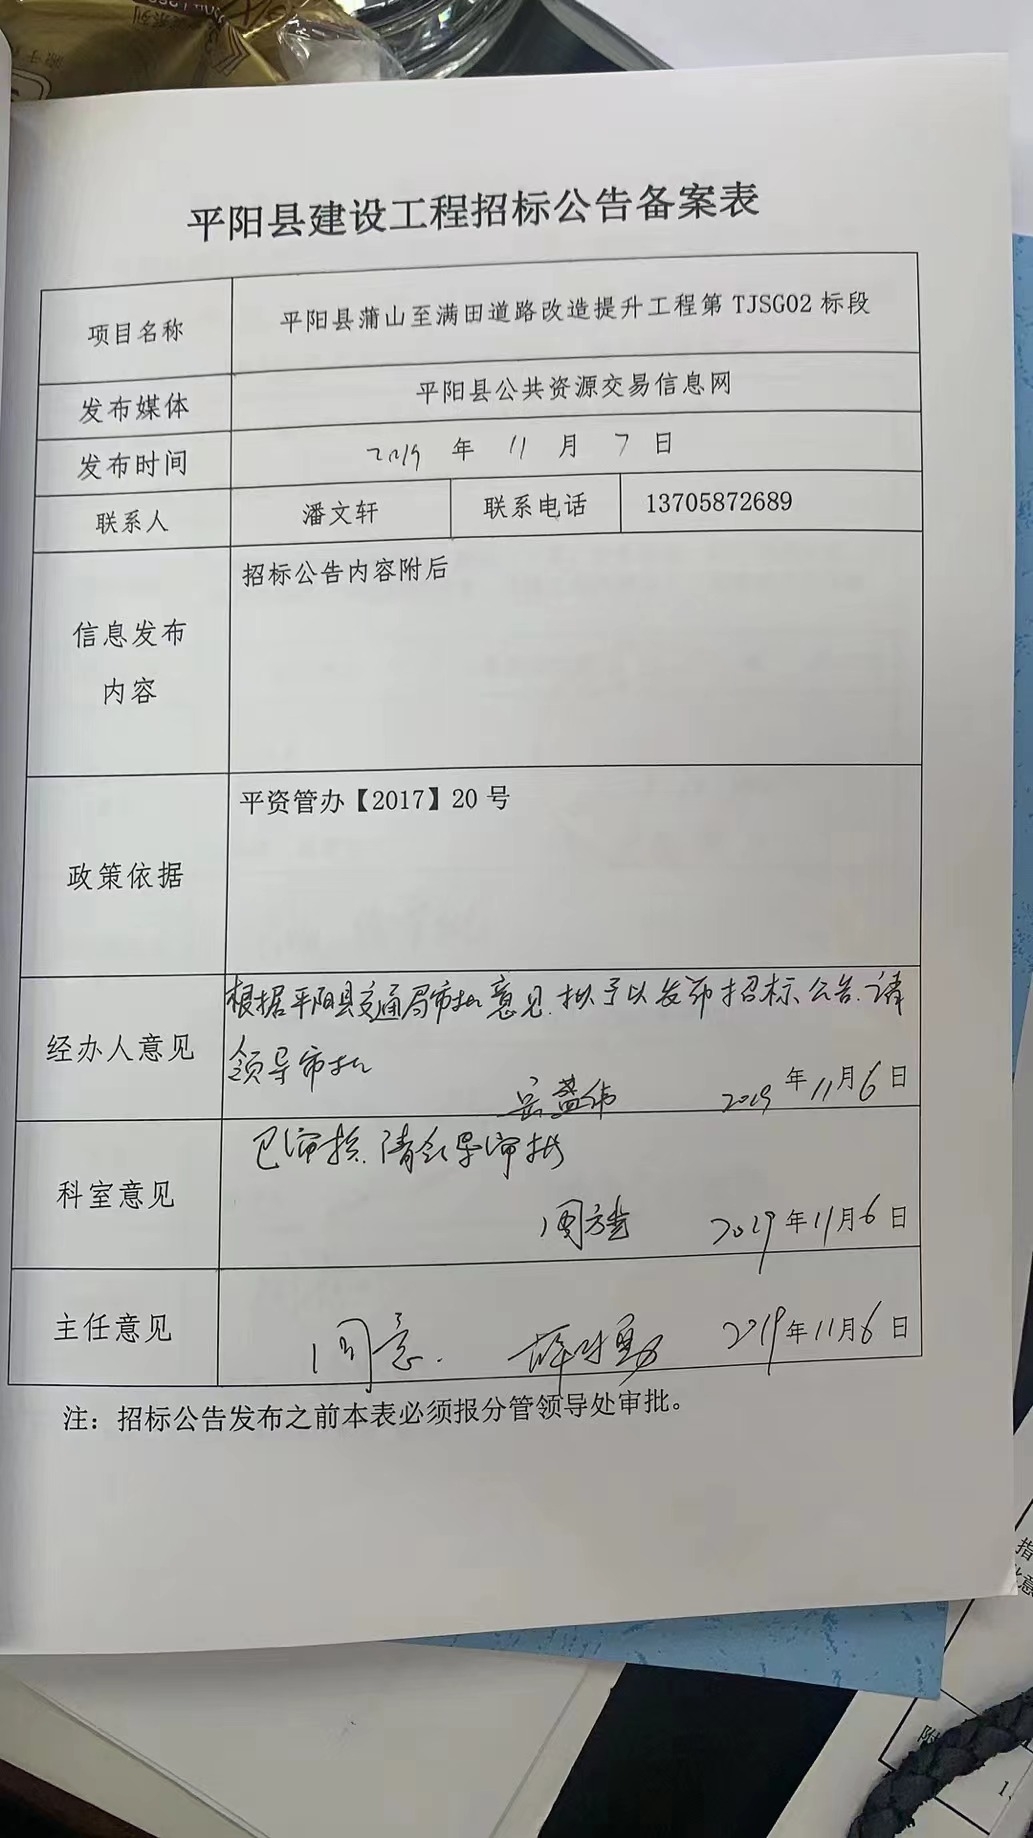 平阳县建设工程招标公告备案表
项目名称 平阳县蒲山至满田道路改造提升工程第 TJSG02 标段
发布媒体 平阳县公共资源交易信息网
发布时间 2019 年 11 月 7 日
联系人 潘文轩 联系电话 13705872689
招标公告内容附后
信息发布
内容
平资管办【2017】20 号
政策依据
根据平阳县交通局审批意见.拟予以发布招标公告.请
经办人意见
领导审批
2019 年 11 月 6 日
已审核.请领导审批
科室意见
2019 年 11 月 6 日
主任意见 同意. 2019 年 11 月 6 日
注：招标公告发布之前本表必须报分管领导处审批。